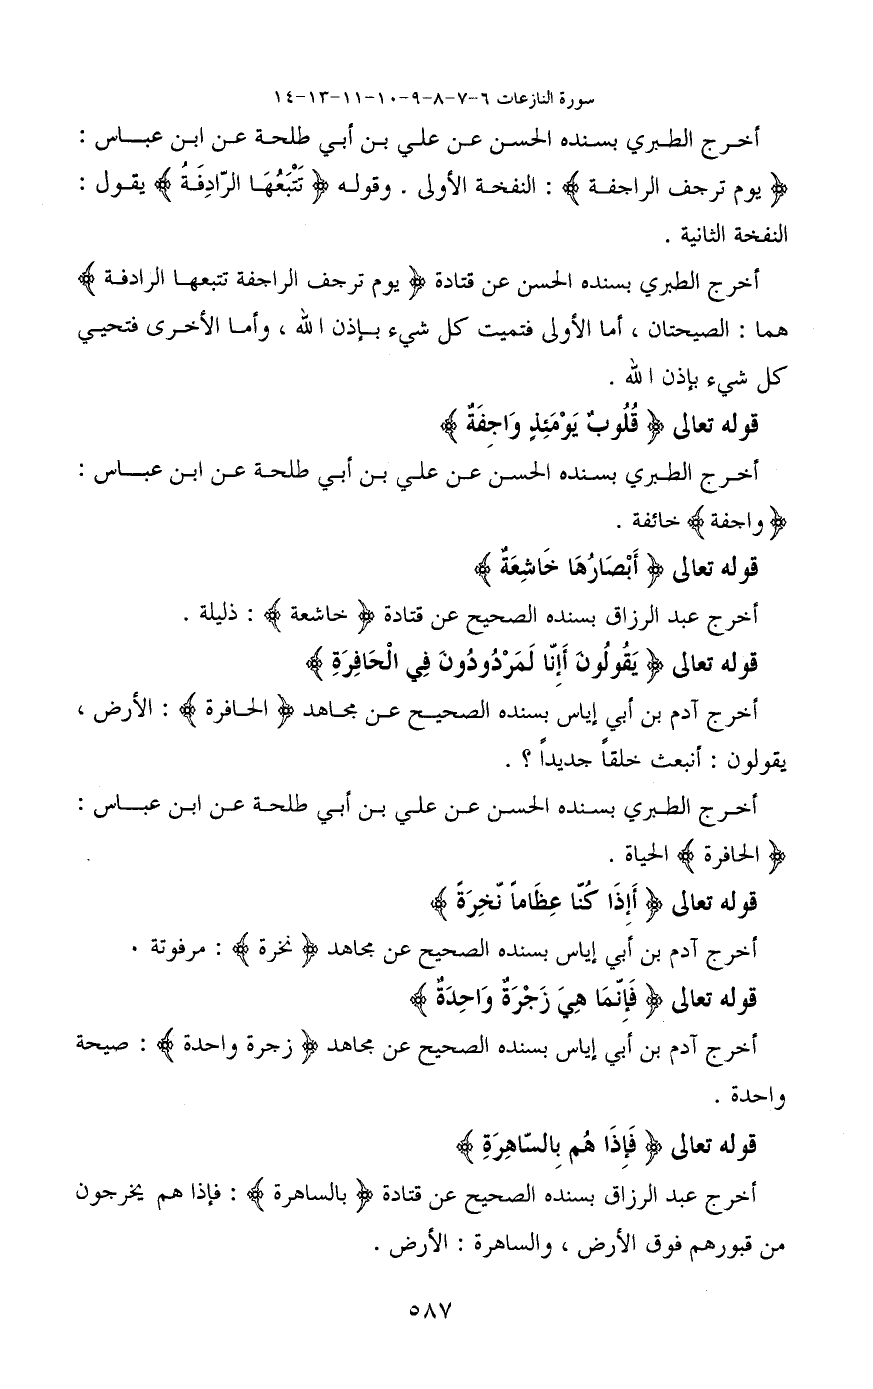 سورة النازعات ٦-٧-٨-٩-١٠-١١-١٣-١٤
أخرج الطبري بسنده الحسن عن علي بن أبي طلحة عن ابن عباس :
﴿ يوم ترجف الراجفة ﴾ : النفخة الأولى . وقوله ﴿ تَتْبَعُهَا الرّادِفَةُ ﴾ يقول :
النفخة الثانية .
أخرج الطبري بسنده الحسن عن قتادة ﴿ يوم ترجف الراجفة تتبعها الرادفة ﴾
هما : الصيحتان ، أما الأولى فتميت كل شيء بإذن الله ، وأما الأخرى فتحيي
كل شيء بإذن الله .
قوله تعالى ﴿ قُلُوبٌ يَوْمَئِذٍ وَاجِفَةٌ ﴾
أخرج الطبري بسنده الحسن عن علي بن أبي طلحة عن ابن عباس :
﴿ واجفة ﴾ خائفة .
قوله تعالى ﴿ أَبْصَارُهَا خَاشِعَةٌ ﴾
أخرج عبد الرزاق بسنده الصحيح عن قتادة ﴿ خاشعة ﴾ : ذليلة .
قوله تعالى ﴿ يَقُولُونَ أَإِنّا لَمَرْدُودُونَ فِي الْحَافِرَةِ ﴾
أخرج آدم بن أبي إياس بسنده الصحيح عن مجاهد ﴿ الحافرة ﴾ : الأرض ،
يقولون : أنبعث خلقاً جديداً ؟ .
أخرج الطبري بسنده الحسن عن علي بن أبي طلحة عن ابن عباس :
﴿ الحافرة ﴾ الحياة .
قوله تعالى ﴿ أَإِذَا كُنّا عِظَاماً نّخِرَةً ﴾
أخرج آدم بن أبي إياس بسنده الصحيح عن مجاهد ﴿ نخرة ﴾ : مرفوتة .
قوله تعالى ﴿ فَإِنّمَا هِيَ زَجْرَةٌ وَاحِدَةٌ ﴾
أخرج آدم بن أبي إياس بسنده الصحيح عن مجاهد ﴿ زجرة واحدة ﴾ : صيحة
واحدة .
قوله تعالى ﴿ فَإِذَا هُم بِالسّاهِرَةِ ﴾
أخرج عبد الرزاق بسنده الصحيح عن قتادة ﴿ بالساهرة ﴾ : فإذا هم يخرجون
من قبورهم فوق الأرض ، والساهرة : الأرض .
٥٨٧